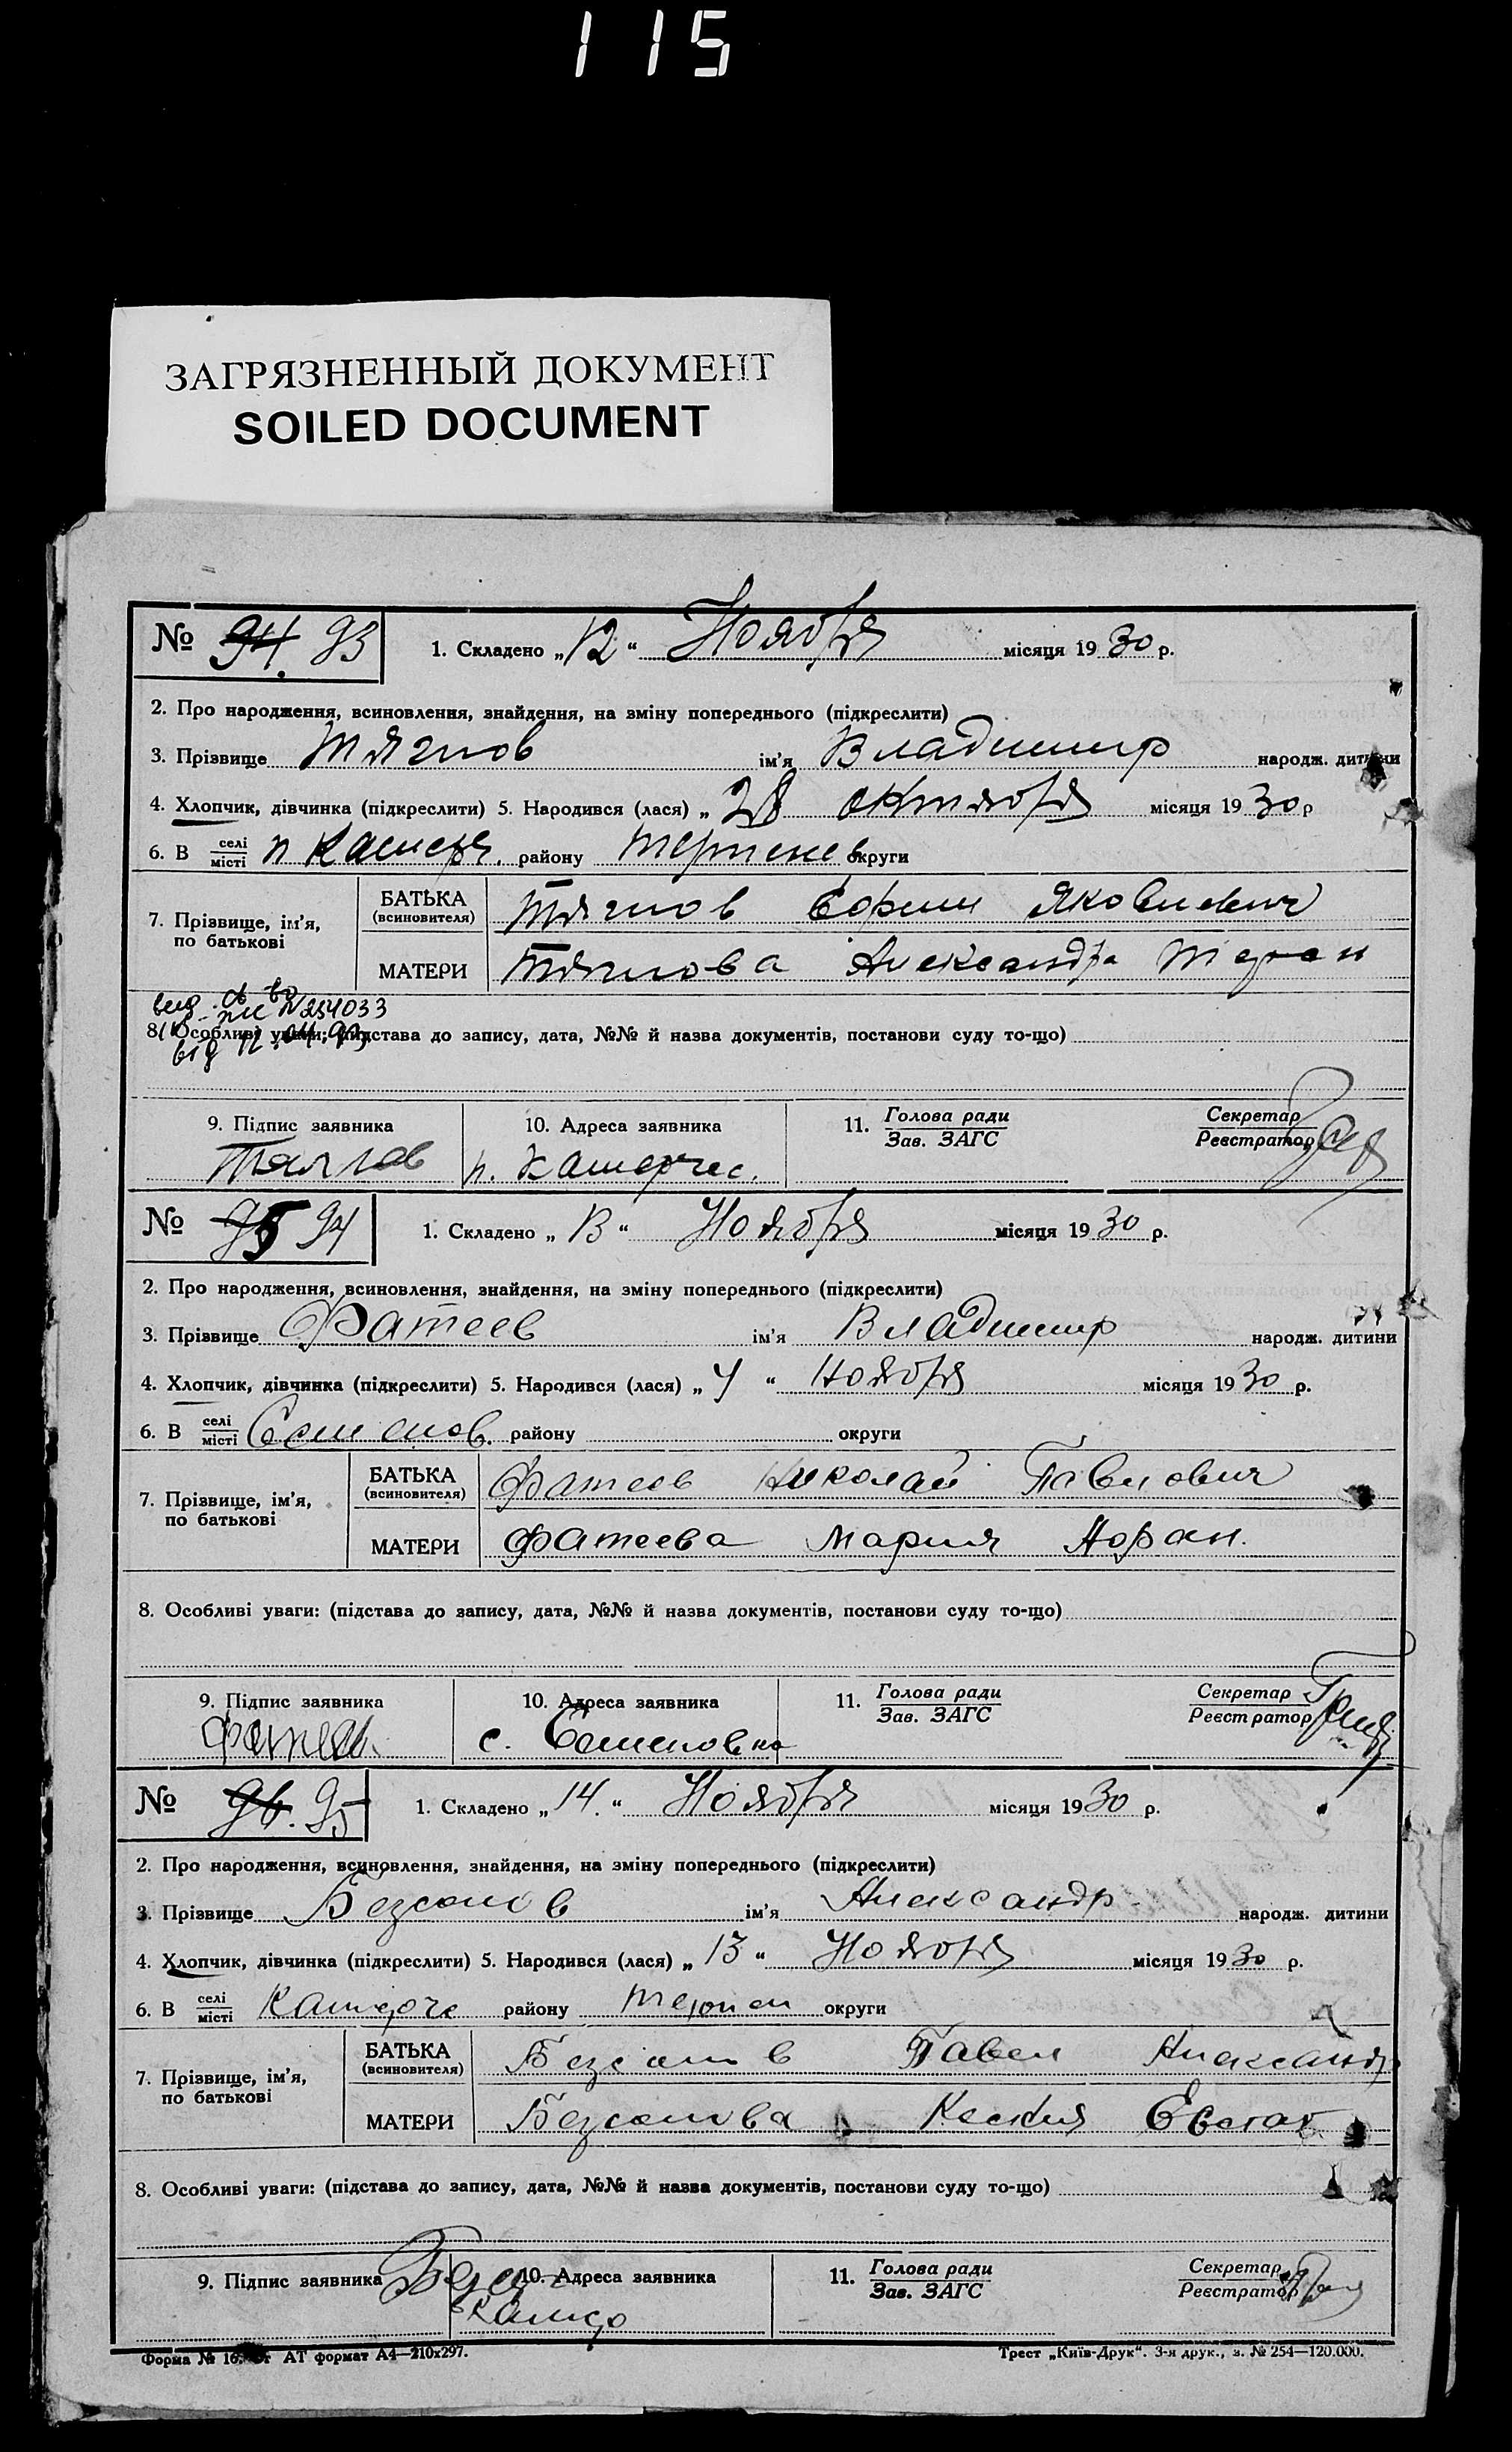 115
ЗАГРЯЗНЕННЫЙ ДОКУМЕНТ
SOILED DOCUMENT
№ 94. 93 1. Складено „12“ Ноября місяця 1930 р.
2. Про народження, всиновлення, знайдення, на зміну попереднього (підкреслити)
3. Прізвище ім'я Владимир народж. дитини
4. Хлопчик, дівчинка (підкреслити) 5. Народився (лася) „28 октября місяця 1930 р
6. В селі/місті п району округи
7. Прізвище, ім'я, по батькові
БАТЬКА (всиновителя) Яковлевич
МАТЕРИ Александра
№ 254033
8. Особливі уваги: (підстава до запису, дата, №№ й назва документів, постанови суду то-що)
від 12.04.93
9. Підпис заявника 10. Адреса заявника 11. Голова ради/Зав. ЗАГС Секретар/Реєстратор
п.
№ 95 94 1. Складено „13“ Ноября місяця 1930 р.
2. Про народження, всиновлення, знайдення, на зміну попереднього (підкреслити)
3. Прізвище Фатеев ім'я Владимир народж. дитини
4. Хлопчик, дівчинка (підкреслити) 5. Народився (лася) „4“ ноября місяця 1930 р.
6. В селі/місті Семенов. району округи
7. Прізвище, ім'я, по батькові
БАТЬКА (всиновителя) Фатеев Николай Павлович
МАТЕРИ Фатеева Мария
8. Особливі уваги: (підстава до запису, дата, №№ й назва документів, постанови суду то-що)
9. Підпис заявника 10. Адреса заявника 11. Голова ради/Зав. ЗАГС Секретар/Реєстратор
с. Семеновка
№ 96. 95 1. Складено „14.“ Ноября місяця 1930 р.
2. Про народження, всиновлення, знайдення, на зміну попереднього (підкреслити)
3. Прізвище Безсонов ім'я Александр народж. дитини
4. Хлопчик, дівчинка (підкреслити) 5. Народився (лася) „13“ Ноября місяця 1930 р.
6. В селі/місті району округи
7. Прізвище, ім'я, по батькові
БАТЬКА (всиновителя) Безсонов Павел Александр
МАТЕРИ Безсонова Ксения Евстаф
8. Особливі уваги: (підстава до запису, дата, №№ й назва документів, постанови суду то-що)
9. Підпис заявника 10. Адреса заявника 11. Голова ради/Зав. ЗАГС Секретар/Реєстратор
Форма № 16. АТ формат А4—210х297. Трест „Київ-Друк“. 3-я друк., з. № 254—120.000.